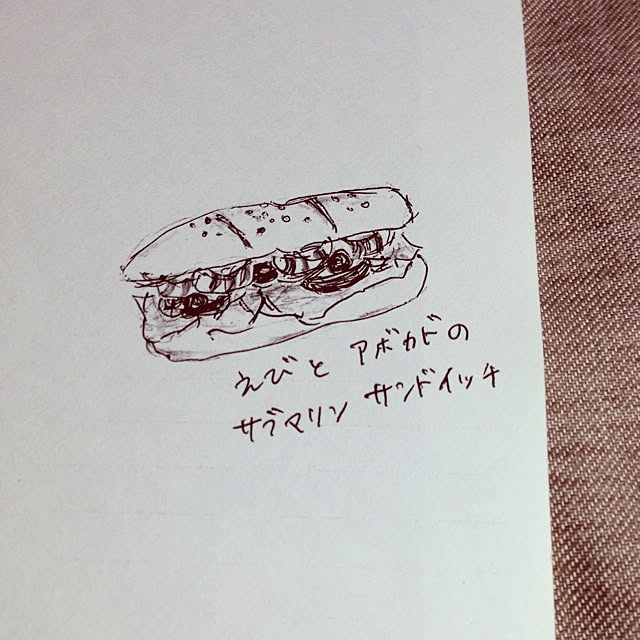 えびと アボカドの
サブマリン サンドイッチ